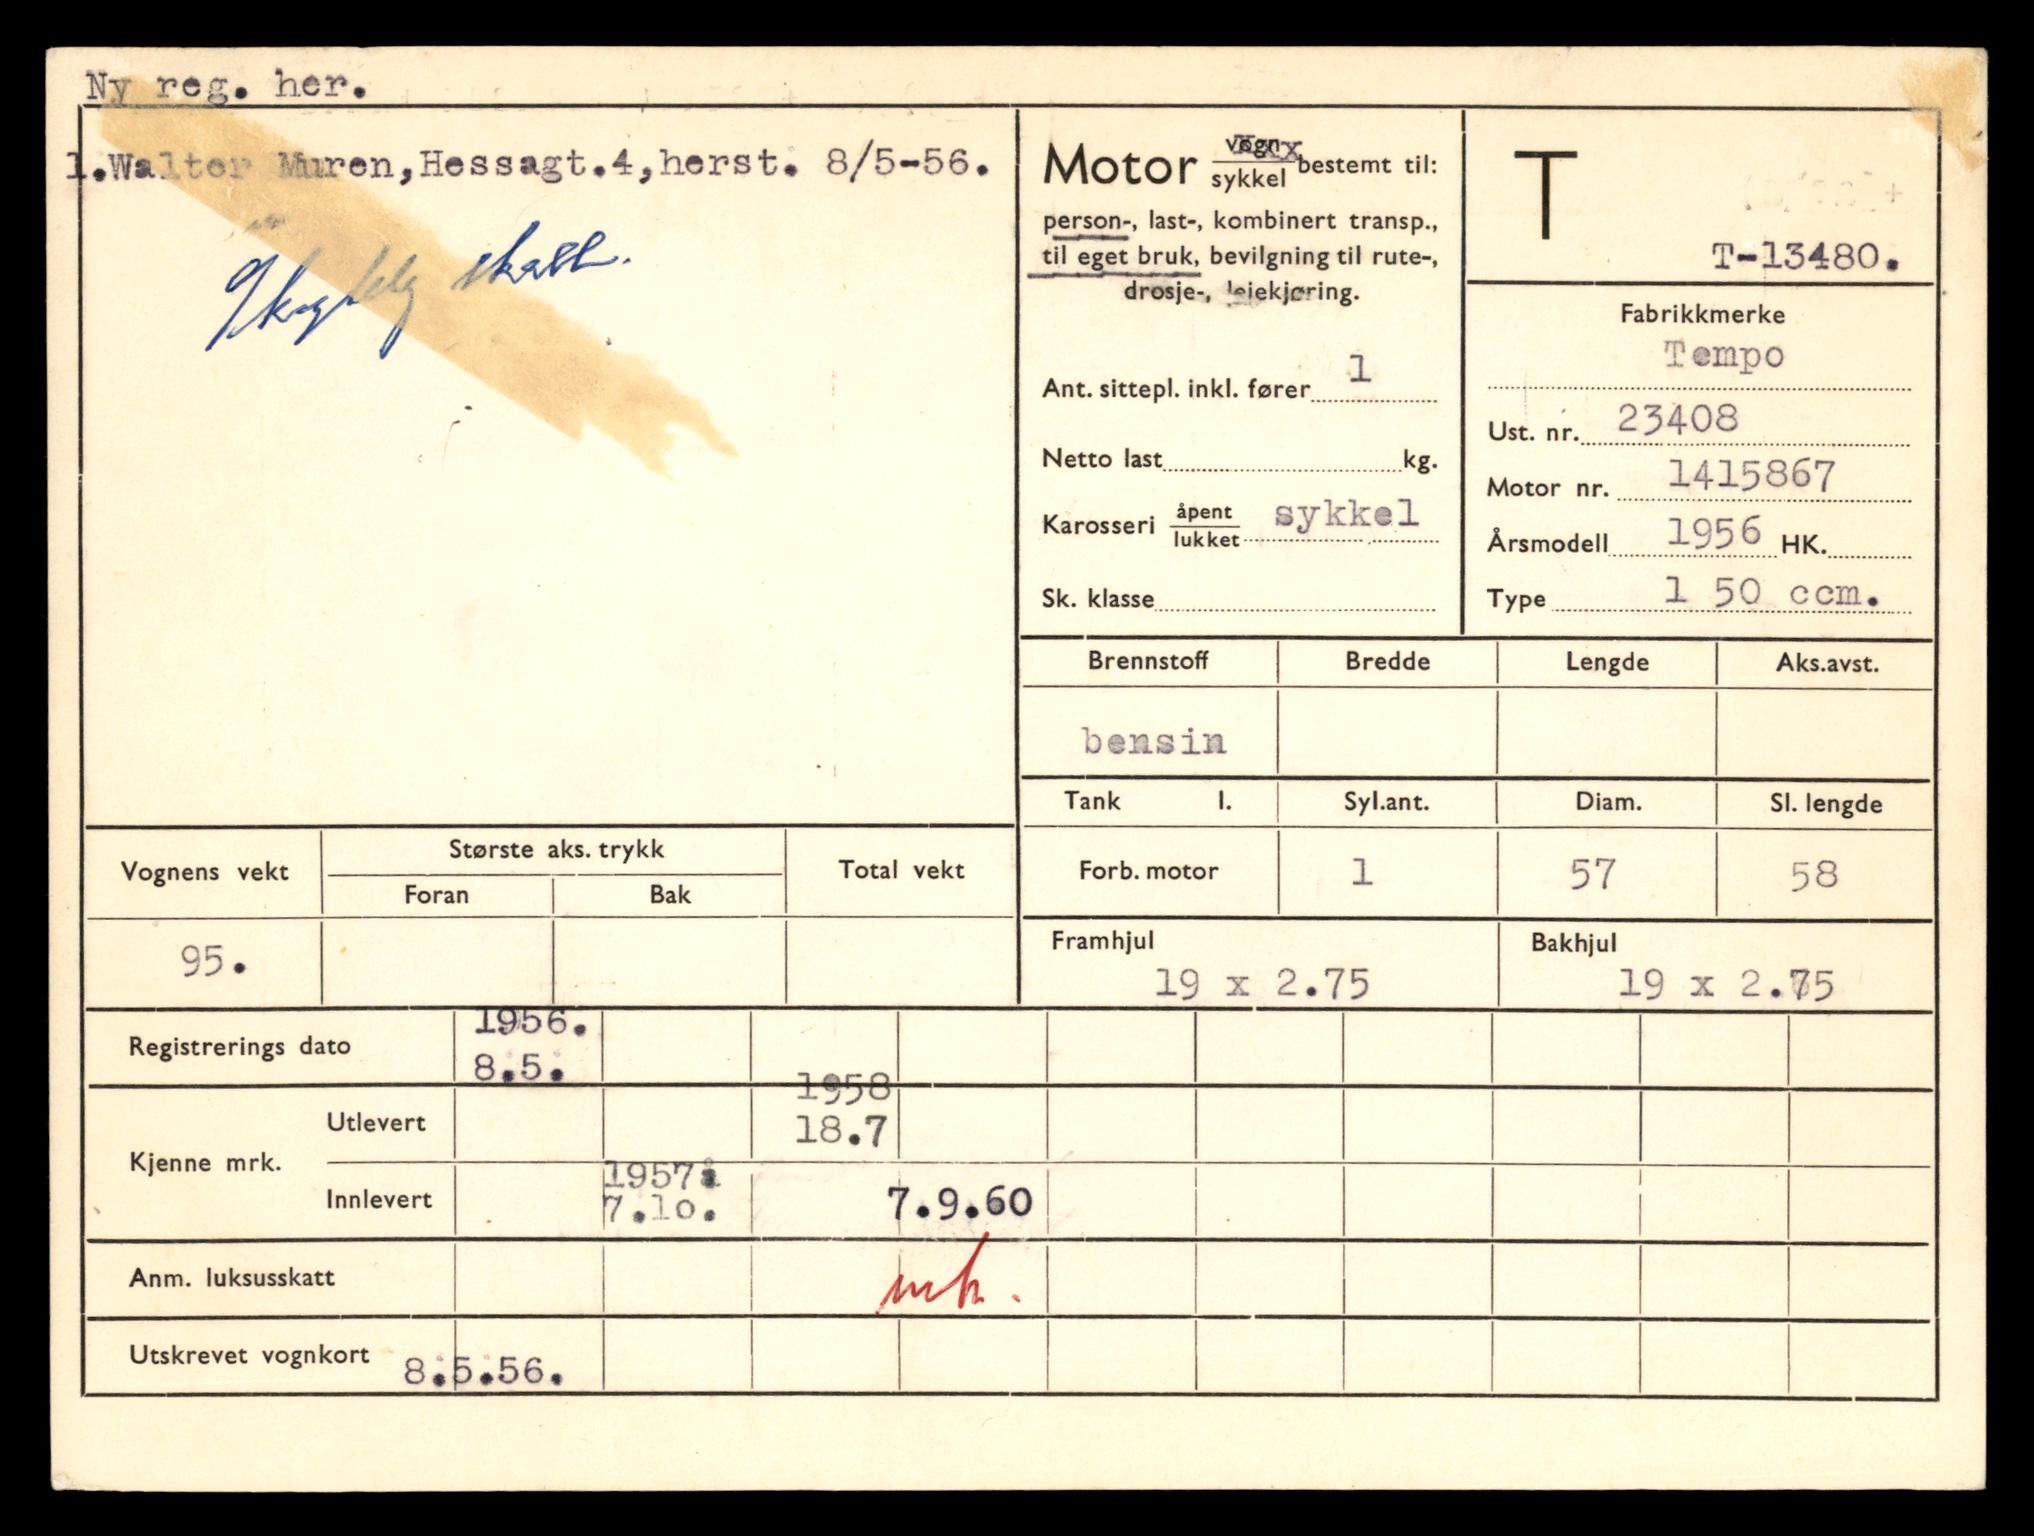 Ny reg. her.
1.Walter Muren,Hessagt.4,herst. 8/5-56.
skatt.
Motor vogn xxx
sykkel bestemt til:
person-, last-, kombinert transp.,
til eget bruk, bevilgning til rute-,
drosje-, leiekjøring.
Ant. sittepl. inkl. fører 1
Netto last kg.
Karosseri åpent
lukket sykkel
Sk. klasse
T
T-13480.
Fabrikkmerke
Tempo
Ust. nr. 23408
Motor nr. 1415867
Årsmodell 1956 HK.
Type 1 50 ccm.
Brennstoff Bredde Lengde Aks.avst.
bensin
Tank l. Syl.ant. Diam. Sl. lengde
Forb. motor 1 57 58
Framhjul Bakhjul
19 x 2.75 19 x 2.75
Vognens vekt Største aks. trykk Total vekt
Foran Bak
95.
Registrerings dato 1956.
8.5.
Kjenne mrk. Utlevert 1958
18.7
Innlevert 1957
7.10. 7.9.60
Anm. luksusskatt
Utskrevet vognkort 8.5.56.